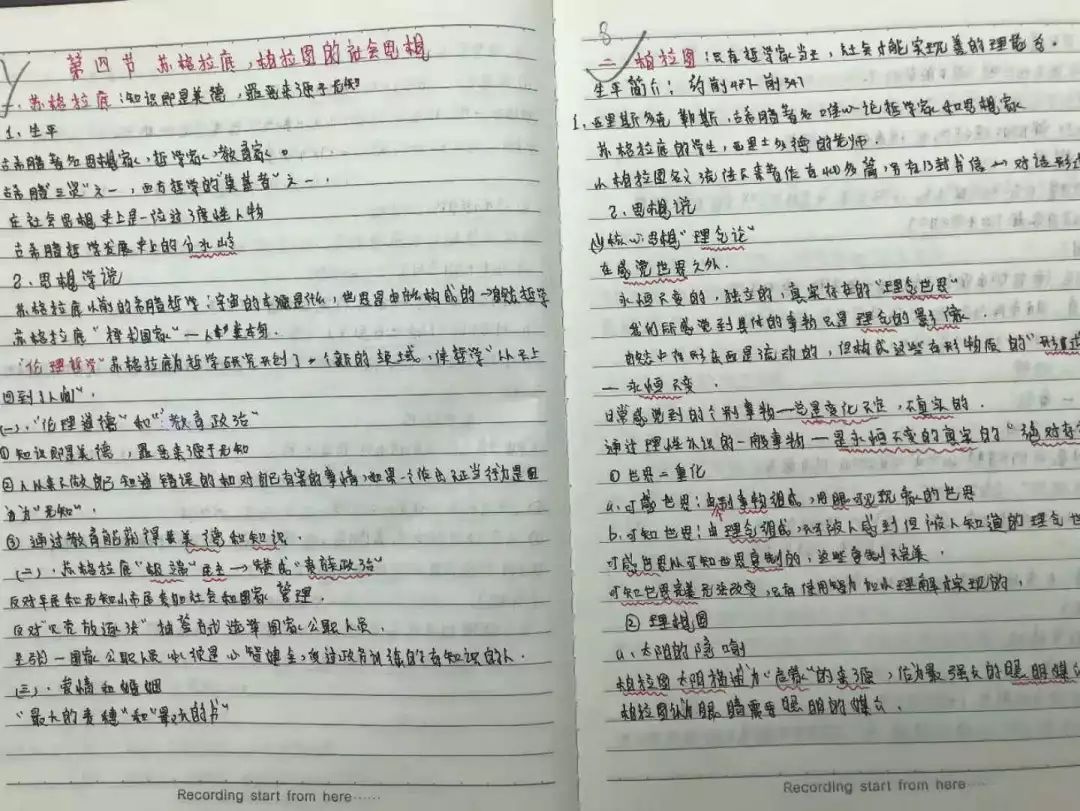 第四节 苏格拉底,柏拉图的社会思想
一. 苏格拉底:知识即是美德,罪恶来源于无知
1. 生平
古希腊著名思想家,哲学家,教育家。
古希腊"三贤"之一,西方哲学的"奠基者"之一.
在社会思想史上是一位过渡性人物
古希腊哲学发展史上的分水岭
2. 思想学说
苏格拉底以前的希腊哲学:宇宙的本源是什么,世界是由什么构成的→自然哲学
苏格拉底" 国家"—人类本身.
"伦理哲学"苏格拉底为哲学研究开创了一个新的领域,使哲学"从天上
回到了人间".
(一)."伦理道德"和"教育政治"
① 知识即是美德,罪恶来源于无知
② 人从来不做自己知道错误的和对自己有害的事情,如果一个作出不正当行为是因
为"无知".
③ 通过教育能获得美德和知识.
(二).苏格拉底"极端"民主→赞成"贵族政治"
反对平民和无知小市民参加社会和国家管理.
反对"贝壳放逐法"抽签方式选举国家公职人员.
主张—国家公职人员 必须是心智健全,受过政治训练的有知识的人.
(三).爱情和婚姻
"最大的 "和"最大的 "
8
二 柏拉图:只有哲学家当王,社会才能实现善的理念.
生平简介:约前427-前347
1. 亚里斯多克勒斯,古希腊著名唯心论哲学家和思想家
苏格拉底的学生,亚里士多德的老师.
以柏拉图名义流传下来著作有40多篇,另有13封书信 对话形式
2. 思想说
(1)核心思想"理念论"
在感觉世界之外.
永恒不变的,独立的,真实存在的"理念世界"
我们所感觉到具体的事物只是理念的影像.
自然中有形东西是流动的,但构成这些有形物质的"形式
— 永恒不变.
日常感觉到的个别事物—总是变化不定,不真实的.
通过理性认识的一般事物—是永恒不变的真实的"绝对存
① 世界二重化
a. 可感世界:由个别事物组成,用眼可观察的世界
b. 可知世界:由理念组成,不可被人感到但被人知道的理念世
可感世界从可知世界复制的,这些复制不完美.
可知世界完美无法改变,只有使用智力加以理解才实现的.
② 理想国
a. 太阳的隐喻
柏拉图太阳描述为"启蒙"的来源,作为最强大的照明媒
柏拉图认为眼睛需要照明的媒介.
Recording start from here······
Recording start from here······